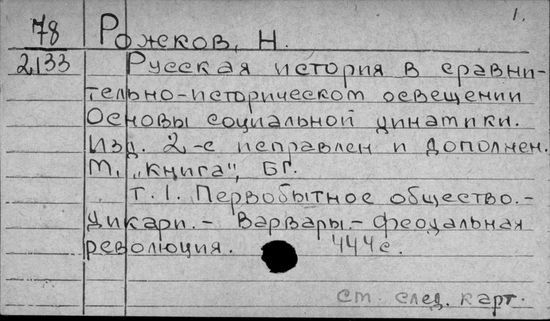 1.
78 Рожков, Н.
2133 Русская история в сравни-
тельно-историческом освещении
Основы социальной динамики.
Изд. 2-е исправлен и дополнен.
М., "Книга", БГ.
Т. 1. Первобытное общество.-
Дикари.- Варвары.- Феодальная
революция. 444с.
См. след. карт.